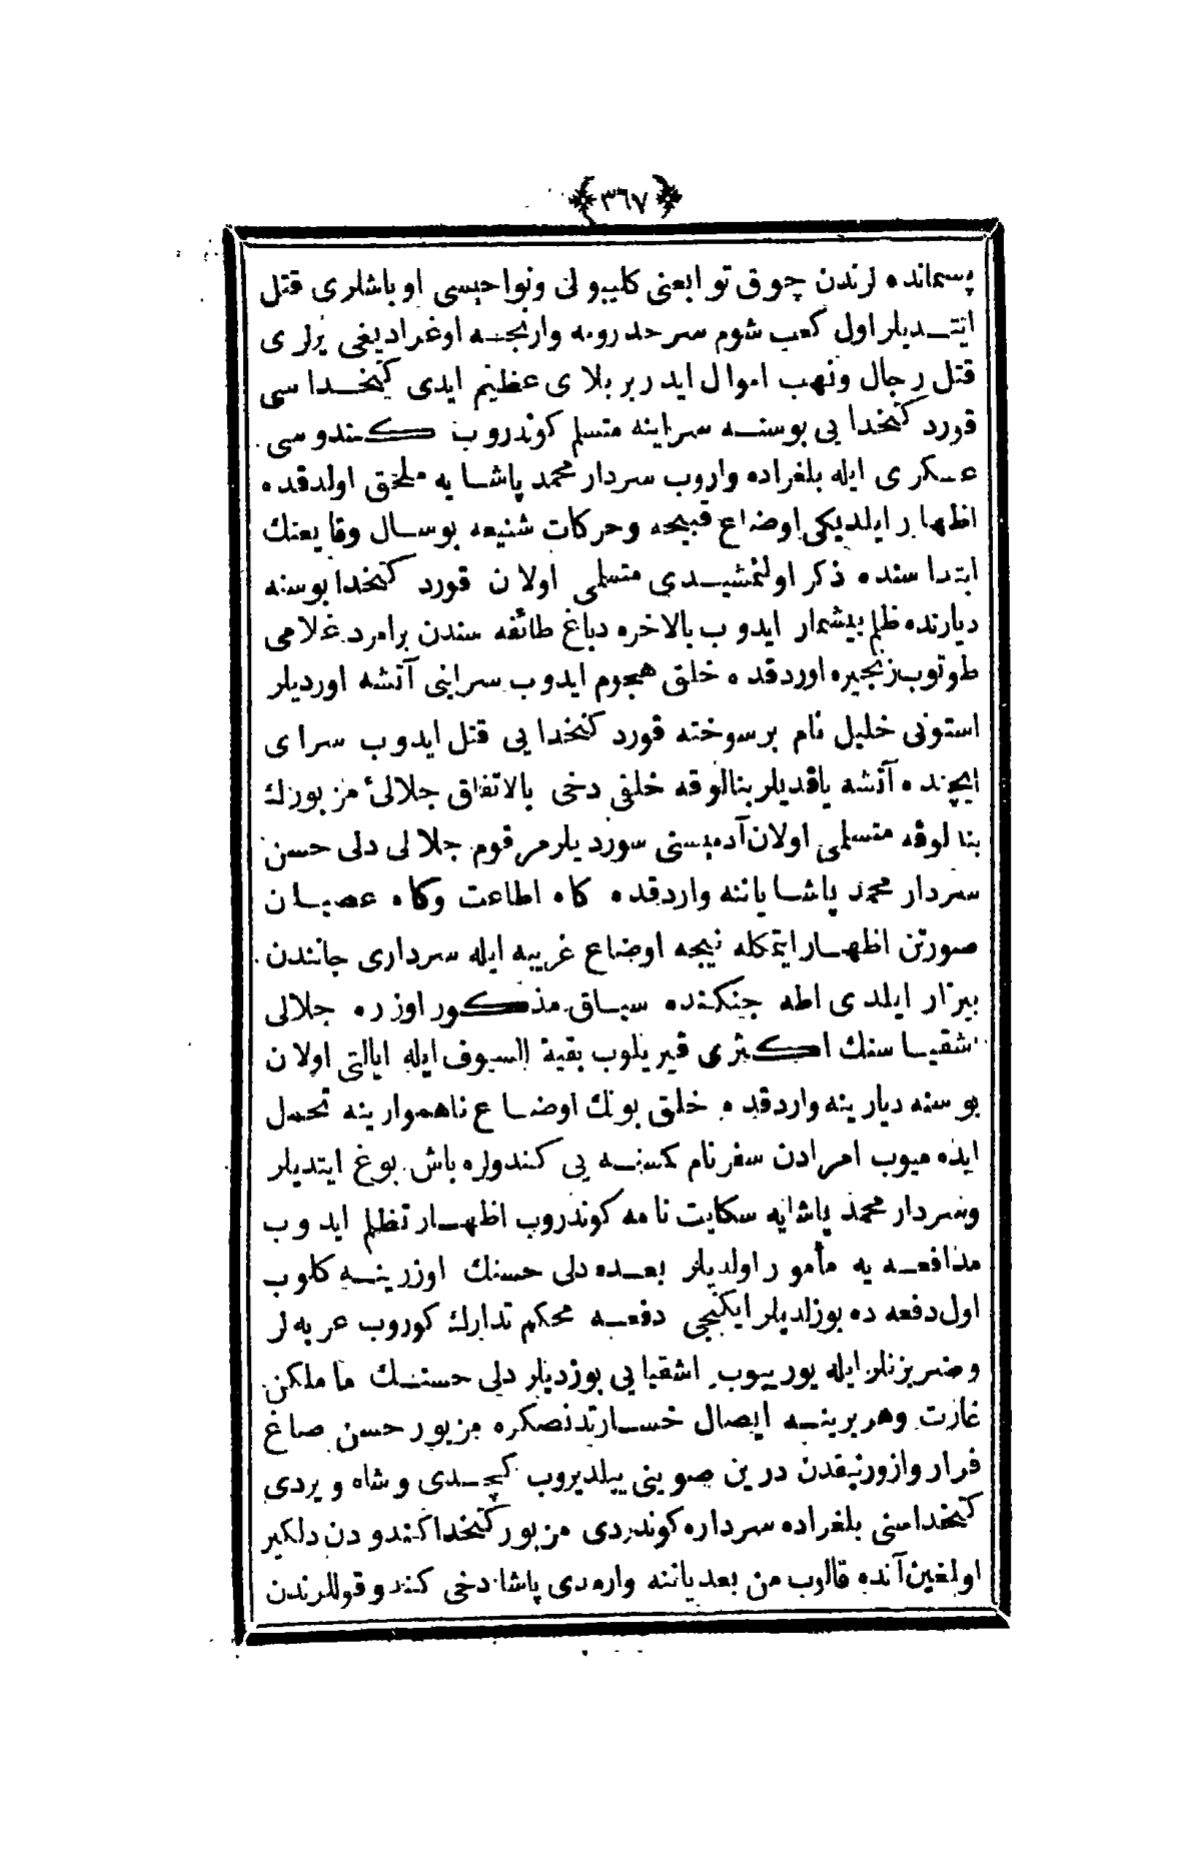 ﴿٣٦٧﴾
پسمانده لرندن چوق توابعنی کلیبولی ونواحیسی اوباشلری قتل
ایتـدیلر اول کعب شوم سرحد رومه وارنجـه اوغرادیغی یرلری
قتل رجال ونهب اموال ایدر بر بلای عظیم ایدی کتخـداسی
قورد کتخدایی بوسنـه سراینه متسلم کوندروب کندوسی
عسکری ایله بلغراده واروب سردار محمد پاشایه ملحق اولدقده
اظهار ایلدیکی اوضاع قبیحه وحرکات شنیعه بوسال وقایعنك
ابتداسنده ذکر اولنمشیـدی متسلمی اولان قورد کتخدا بوسنه
دیارنده ظلم بیشمار ایدوب بالاخره دباغ طائفه سندن بر امرد غلامی
طوتوب زنجیره اوردقده خلق هجوم ایدوب سراینی آتشه اوردیلر
استونی خلیل نام بر سوخته قورد کتخدایی قتل ایدوب سرای
ایچنده آتشه یاقدیلر بنالوقه خلقی دخی بالاتفاق جلالیٔ مزبورك
بنالوقه متسلمی اولان آدمیسنی سوردیلر مرقوم جلالی دلی حسن
سردار محمد پاشا یاننه واردقده کاه اطاعت وکاه عصیـان
صورتن اظهـار ایتمکله نیجه اوضاع غریبه ایله سرداری جانندن
بیزار ایلدی اطه جنکنده سیاق مذکور اوزره جلالی
اشقیـاسنك اکثری قیریلوب بقیة السیوف ایله ایالتی اولان
بوسنه دیارینه واردقده خلق بونك اوضـاع ناهموارینه تحمل
ایده میوب امرادن سفر نام کسنـه یی کندولره باش بوغ ایتدیلر
وسردار محمد پاشایه شکایت نامه کوندروب اظهـار تظلم ایدوب
مدافعـه یه مأمور اولدیلر بعـده دلی حسنك اوزرینـه کلوب
اول دفعه ده بوزلدیلر ایکنجی دفعـه محکم تدارك کوروب عربه لر
وضربزنلر ایله یوریوب اشقیایی بوزدیلر دلی حسنـك ماملکن
غارت وهر برینـه ایصال خسـارتدنصکره مزبور حسن صاغ
فرار وازورنیقدن درین صوینی ییلدیروب کچـدی وشاه ویردی
کتخداسنی بلغراده سرداره کوندردی مزبور کتخدا کندودن دلکیر
اولغین آنده قالوب من بعد یاننه وارمدی پاشا دخی کندو قوللرندن